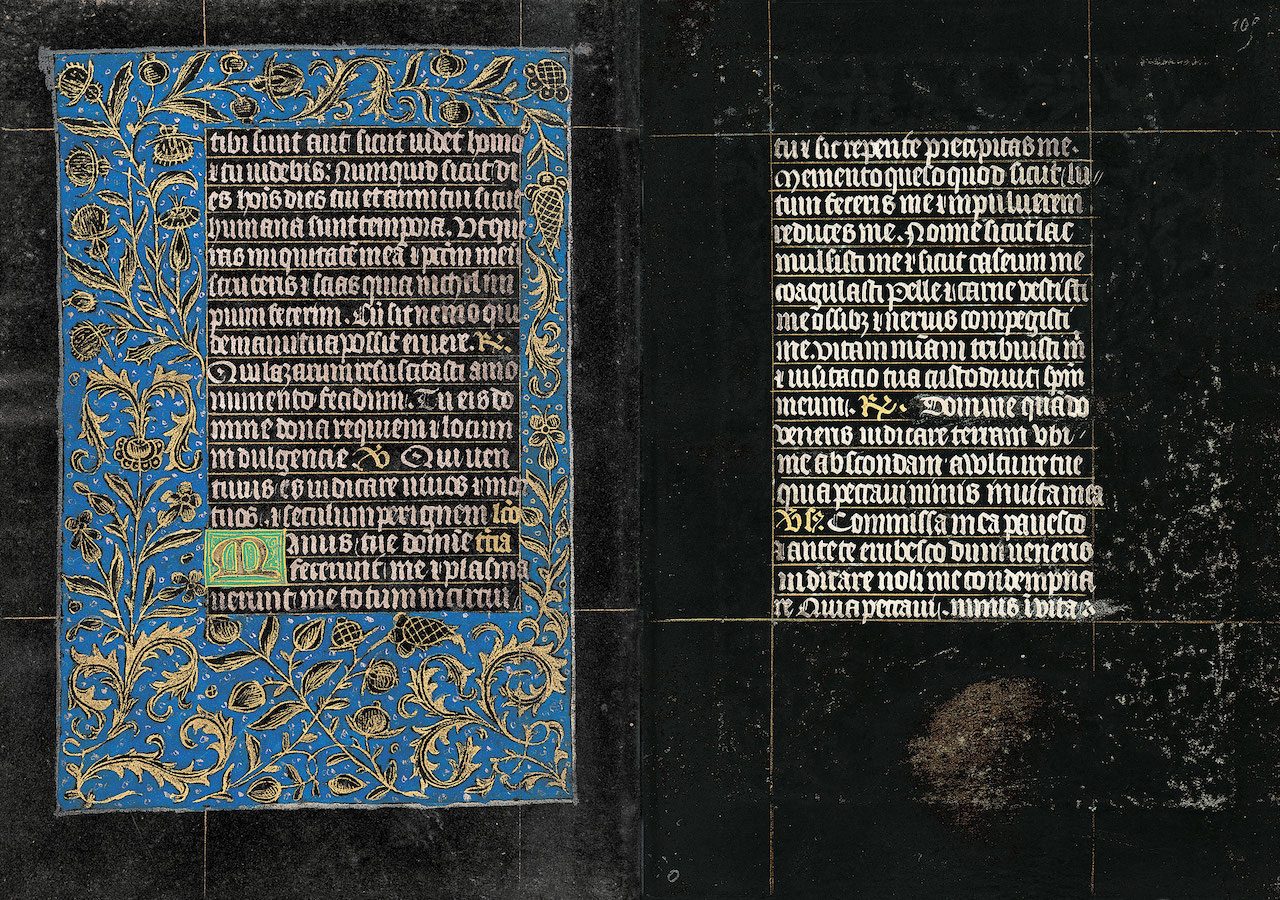 tibi sunt aut sicut videt homo
⁊ tu videbis: Numquid sicut di
es hois dies tui et anni tui sicut
humana sunt tempora. Ut que
ras iniquitatē meā ⁊ pctm̄ meū
scruteris ⁊ scias quia nichil im
pium fecerim. Cū sit nemo qui
de manu tua possit eruere. R.
Qui lazarum resuscitasti a mo
numento fetidum. Tu eis do
mine dona requiem ⁊ locum
indulgencie V Qui ven
turus es iudicare vivos ⁊ mor
tuos. ⁊ seculum per ignem lco
Manus tue domīe tcia
fecerunt me ⁊ plasma
verunt me totum in circui
109
tu ⁊ sic repente precipitas me.
Memento queso quod sicut lu
tum feceris me ⁊ in pulverem
reduces me. Nonne sicut lac
mulsisti me ⁊ sicut caseum me
coagulasti Pelle ⁊ carne vestisti
me ossibꝫ ⁊ nervis compegisti
me. vitam ⁊ mīam tribuisti m̄
⁊ visitatio tua custodivit spm̄
meum. R. Domine quādo
veneris iudicare terram ubi
me abscondam a vultu ire tue
quia peccavi nimis in vita mea
Vs. Commissa mea pavesco
⁊ ante te erubesco dum veneris
iudicare noli me condempna
re Quia peccavi. nimis ī vita